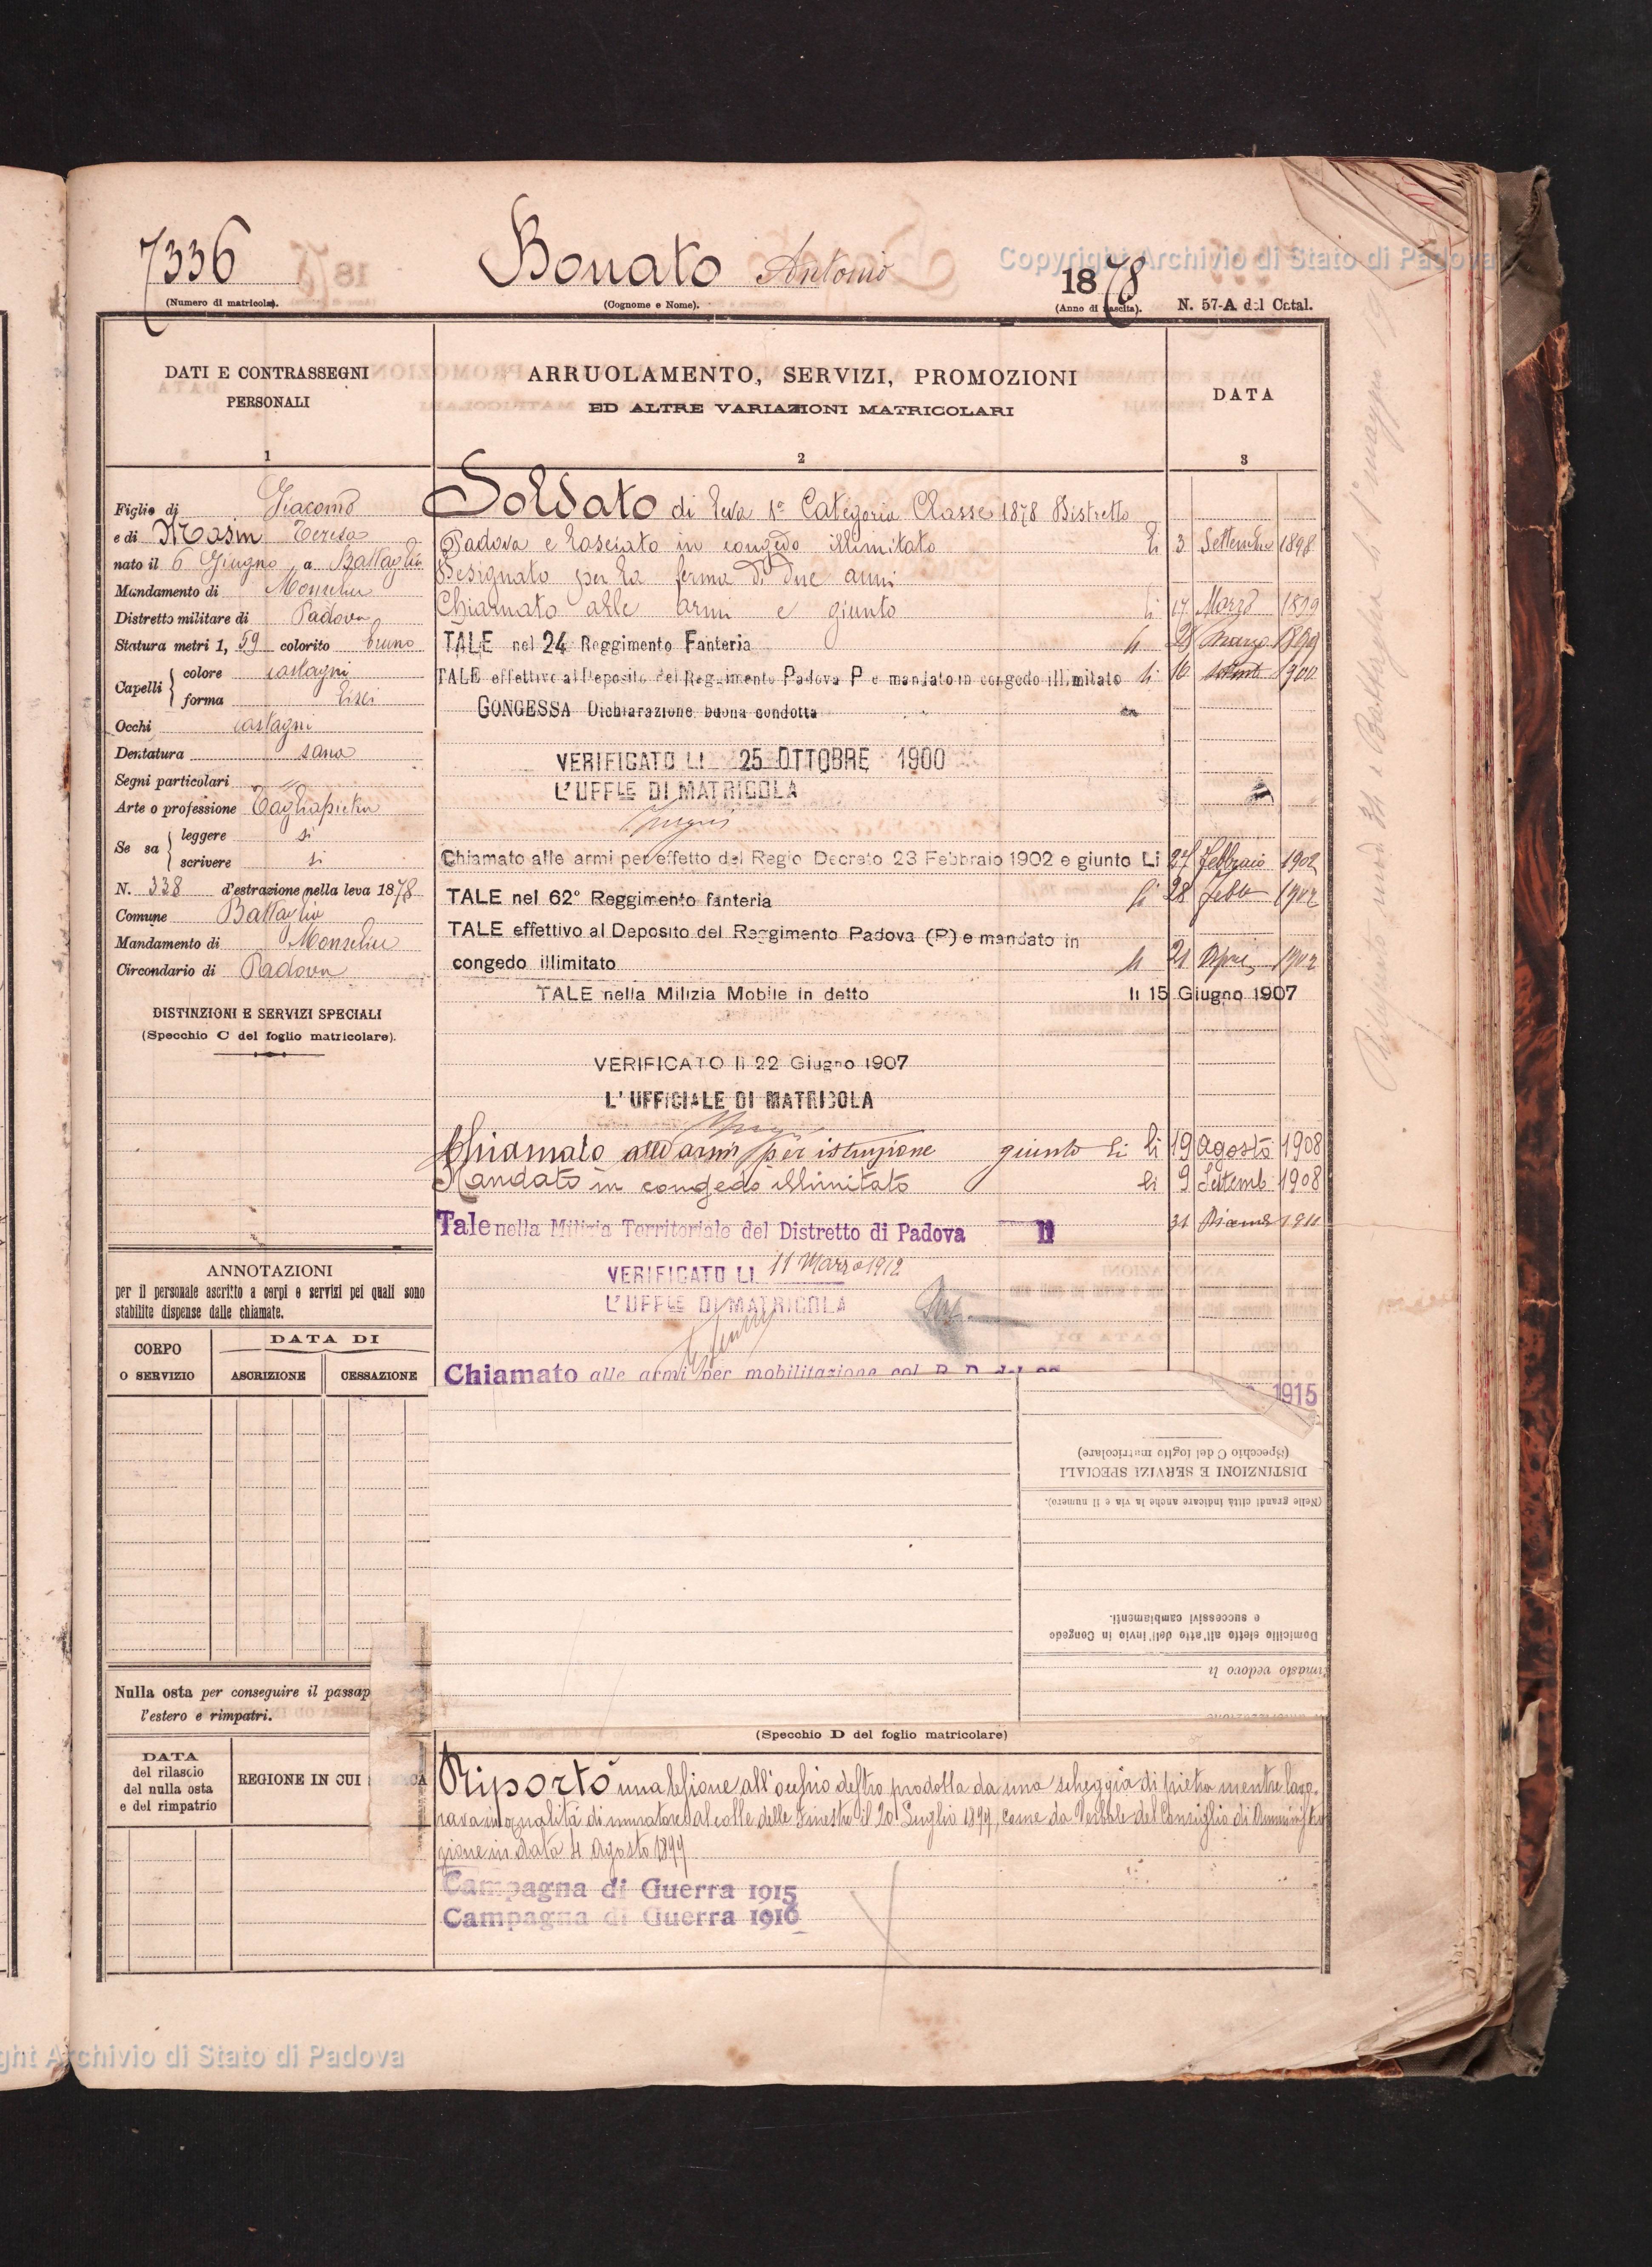 7336
(Numero di matricola).
Bonato Antonio
(Cognome e Nome).
1878
(Anno di nascita).
N. 57-A del Catal.
Copyright Archivio di Stato di Padova
DATI E CONTRASSEGNI
PERSONALI
1
Figlio di Giacomo
e di Masin Teresa
nato il 6 Giugno a Battaglia
Mandamento di Monselice
Distretto militare di Padova
Statura metri 1, 59 colorito bruno
Capelli colore castagni
forma lisci
Occhi castagni
Dentatura sana
Segni particolari "
Arte o professione Tagliapietra
Se sa leggere si
scrivere si
N. 338 d'estrazione nella leva 1878
Comune Battaglia
Mandamento di Monselice
Circondario di Padova
DISTINZIONI E SERVIZI SPECIALI
(Specchio C del foglio matricolare).
ANNOTAZIONI
per il personale ascritto a corpi o servizi pei quali sono
stabilite dispense dalle chiamate.
CORPO
O SERVIZIO
DATA DI
ASCRIZIONE
CESSAZIONE
Nulla osta per conseguire il passap
l'estero e rimpatri.
DATA
del rilascio
del nulla osta
e del rimpatrio
REGIONE IN CUI
ARRUOLAMENTO, SERVIZI, PROMOZIONI
ED ALTRE VARIAZIONI MATRICOLARI
2
DATA
3
Soldato di leva 1a Categoria Classe 1878 Distretto
Padova e lasciato in congedo illimitato li 3 Settembre 1898
Designato per la ferma di due anni
Chiamato alle armi e giunto li 17 Marzo 1899
TALE nel 24 Reggimento Fanteria li 28 Marzo 1899
TALE effettivo al Deposito del Reggimento Padova P e mandato in congedo illimitato li 16 1900
CONCESSA Dichiarazione buona condotta
VERIFICATO LI 25 OTTOBRE 1900
L'UFFLE DI MATRICOLA
Chiamato alle armi per effetto del Regio Decreto 23 Febbraio 1902 e giunto Li 27 febbraio 1902
TALE nel 62° Reggimento fanteria li 28 febb 1902
TALE effettivo al Deposito del Reggimento Padova (P) e mandato in
congedo illimitato li 21 Aprile 1902
TALE nella Milizia Mobile in detto li 15 Giugno 1907
VERIFICATO li 22 Giugno 1907
L'UFFICIALE DI MATRICOLA
Chiamato alle armi per istruzione giunto li li 19 Agosto 1908
Mandato in congedo illimitato li 9 Settemb 1908
Tale nella Milizia Territoriale del Distretto di Padova li 31 Dicemb 1911
VERIFICATO LI 11 Marzo 1912
L'UFFLE DI MATRICOLA
Chiamato alle armi per mobilitazione col R. D. del 22
1915
(Specchio C del foglio matricolare)
DISTINZIONI E SERVIZI SPECIALI
(Nelle grandi città indicare anche la via e il numero).
e successivi cambiamenti.
Domicilio eletto all'atto dell'invio in Congedo
Rimasto vedovo li
(Specchio D del foglio matricolare)
Riportò una lesione all'occhio destro prodotta da una scheggia di pietra mentre lavo-
rava in qualità di muratore al colle delle Finestre il 20 Luglio 1899, come da Verbale del Consiglio di Amministra
zione in data 4 Agosto 1899
Campagna di Guerra 1915
Campagna di Guerra 1916
Copyright Archivio di Stato di Padova